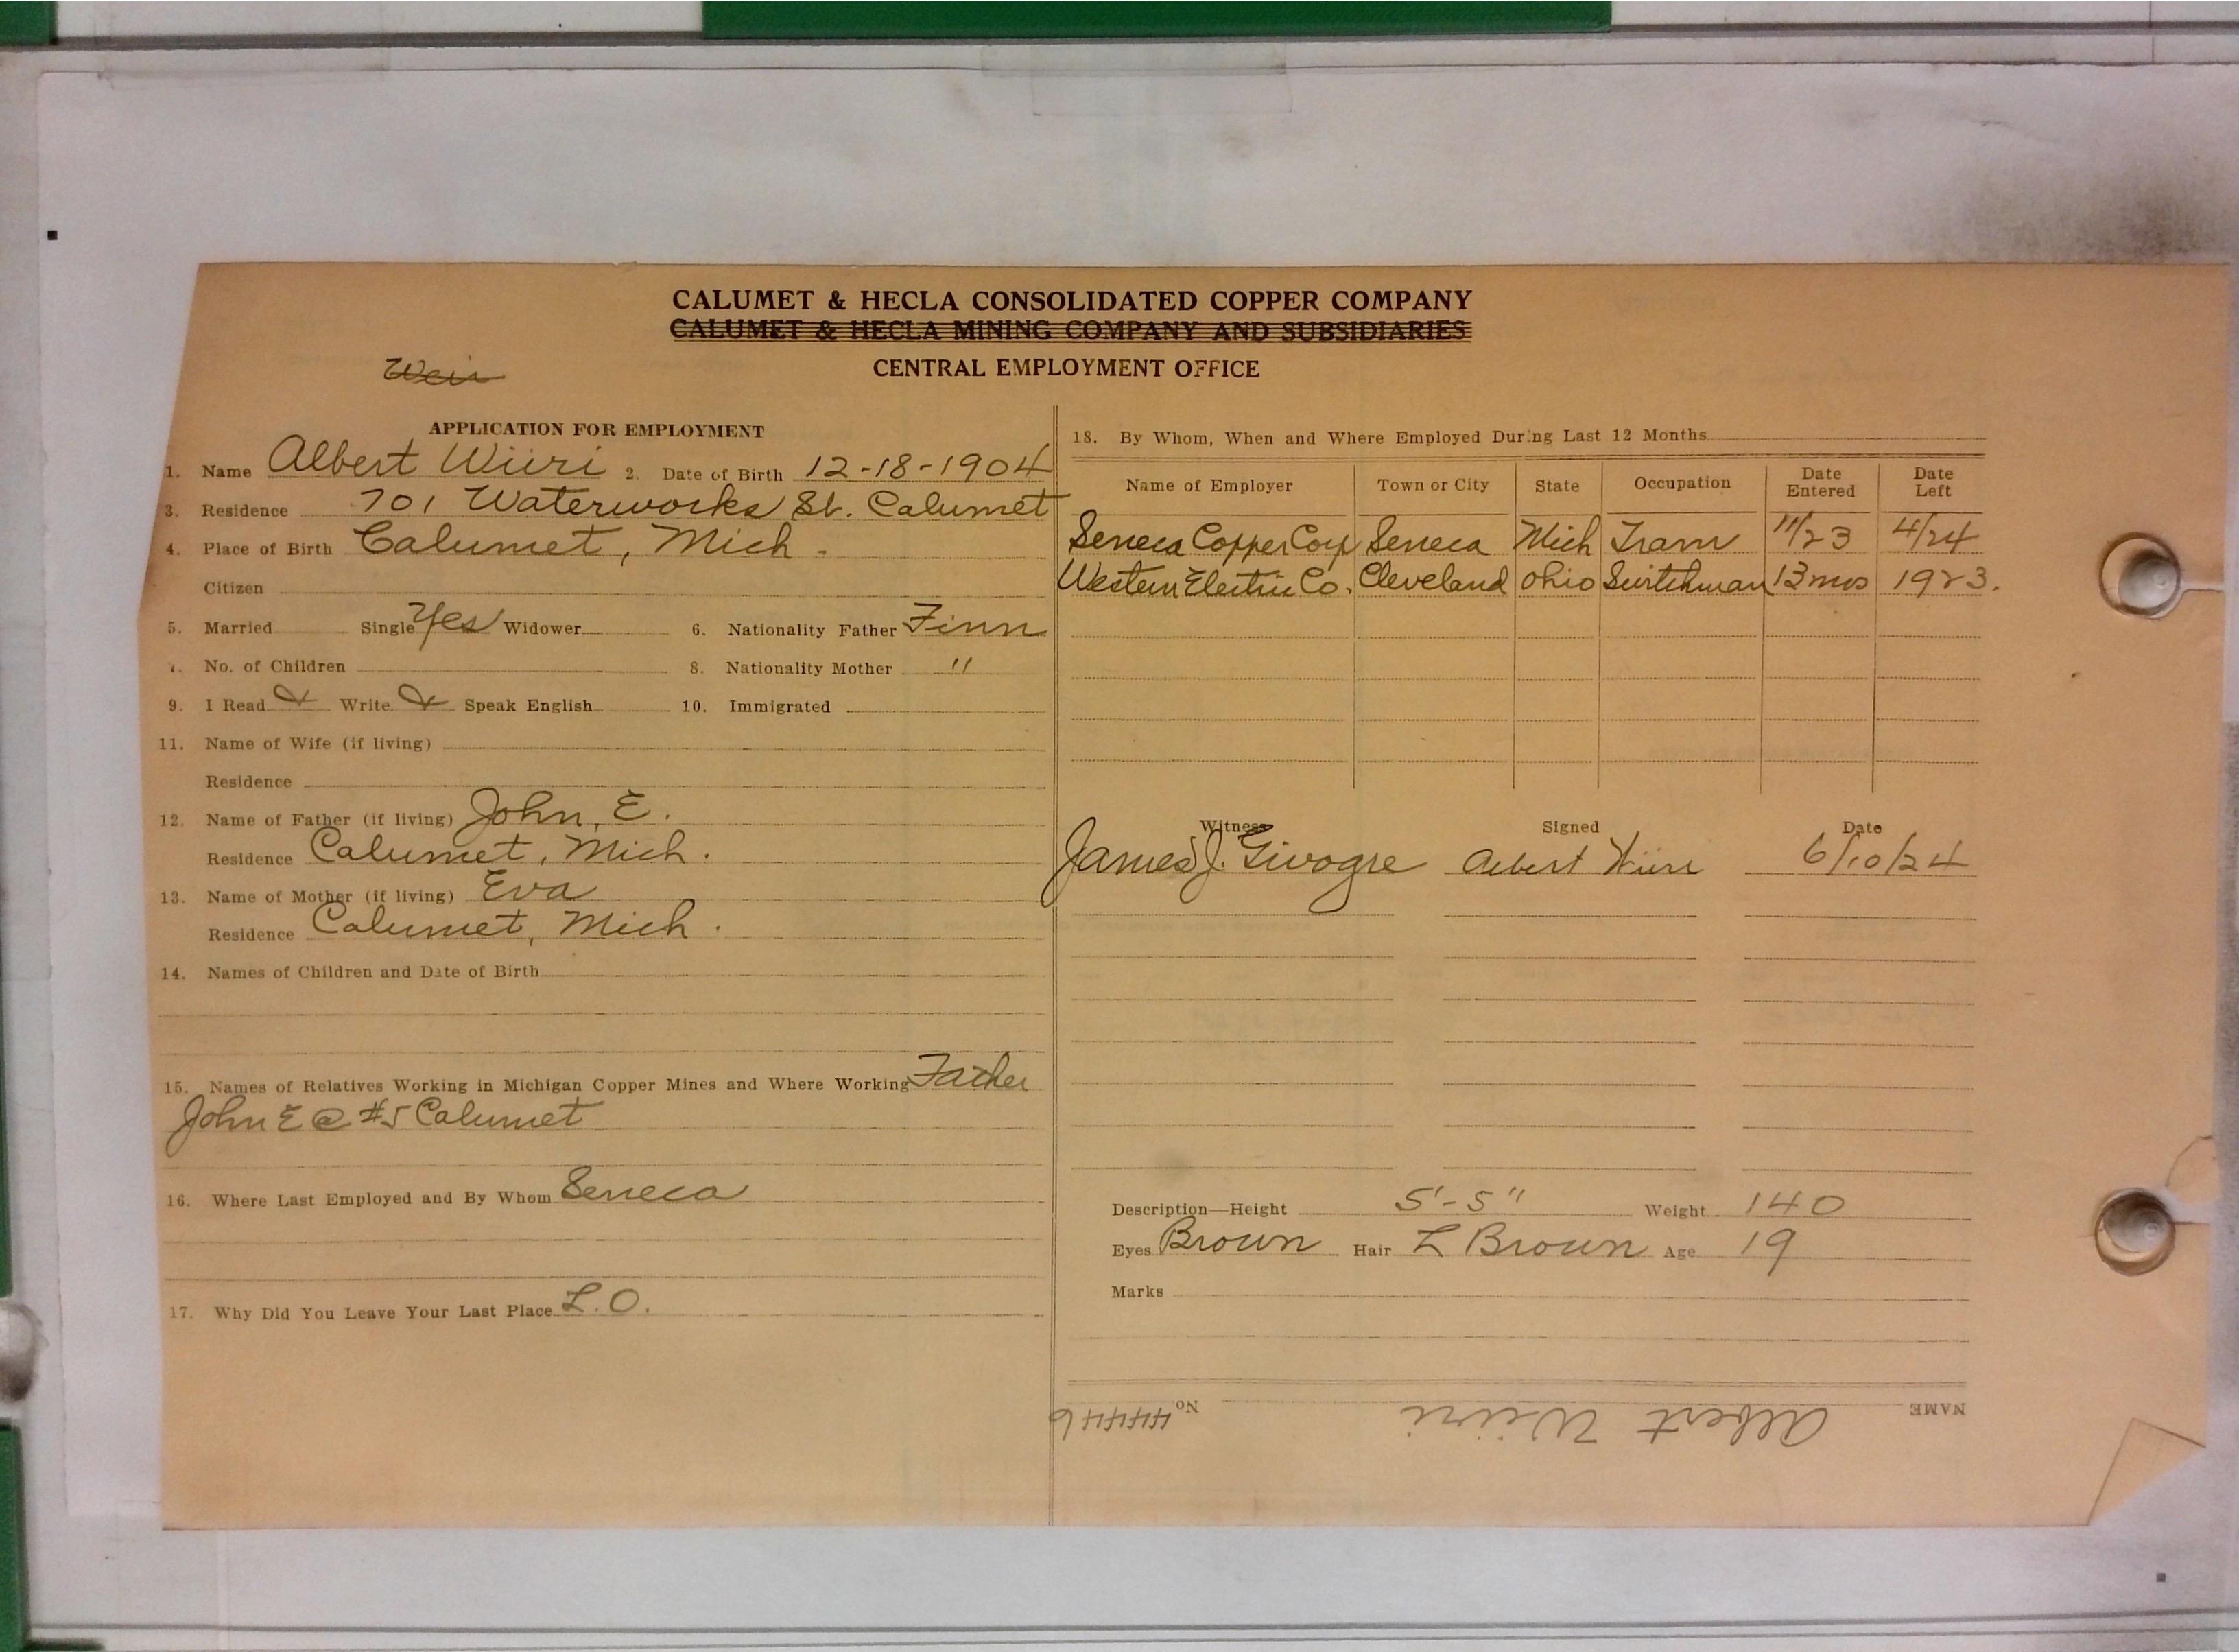 CALUMET & HECLA CONSOLIDATED COPPER COMPANY
CALUMET & HECLA MINING COMPANY AND SUBSIDIARIES
CENTRAL EMPLOYMENT OFFICE
Weir
APPLICATION FOR EMPLOYMENT
1. Name Albert Wiiri 2. Date of Birth 12-18-1904
3. Residence 701 Waterworks St. Calumet
4. Place of Birth Calumet, Mich.
Citizen
5. Married Single Yes Widower 6. Nationality Father Finn
7. No. of Children 8. Nationality Mother "
9. I Read & Write & Speak English 10. Immigrated
11. Name of Wife (if living)
Residence
12. Name of Father (if living) John, E.
Residence Calumet, Mich.
13. Name of Mother (if living) Eva
Residence Calumet, Mich.
14. Names of Children and Date of Birth
15. Names of Relatives Working in Michigan Copper Mines and Where Working Father
John E @ #5 Calumet
16. Where Last Employed and By Whom Seneca
17. Why Did You Leave Your Last Place L.O.
18. By Whom, When and Where Employed During Last 12 Months
Name of Employer Town or City State Occupation Date Entered Date Left
Seneca Copper Corp Seneca Mich Tram 11/23 4/24
Western Electric Co. Cleveland Ohio Switchman 13 mos 1923.
Witness Signed Date
James J. Givogre Albert Wiiri 6/10/24
Description—Height 5'-5" Weight 140
Eyes Brown Hair L Brown Age 19
Marks
NAME Albert Wiiri No. 44446